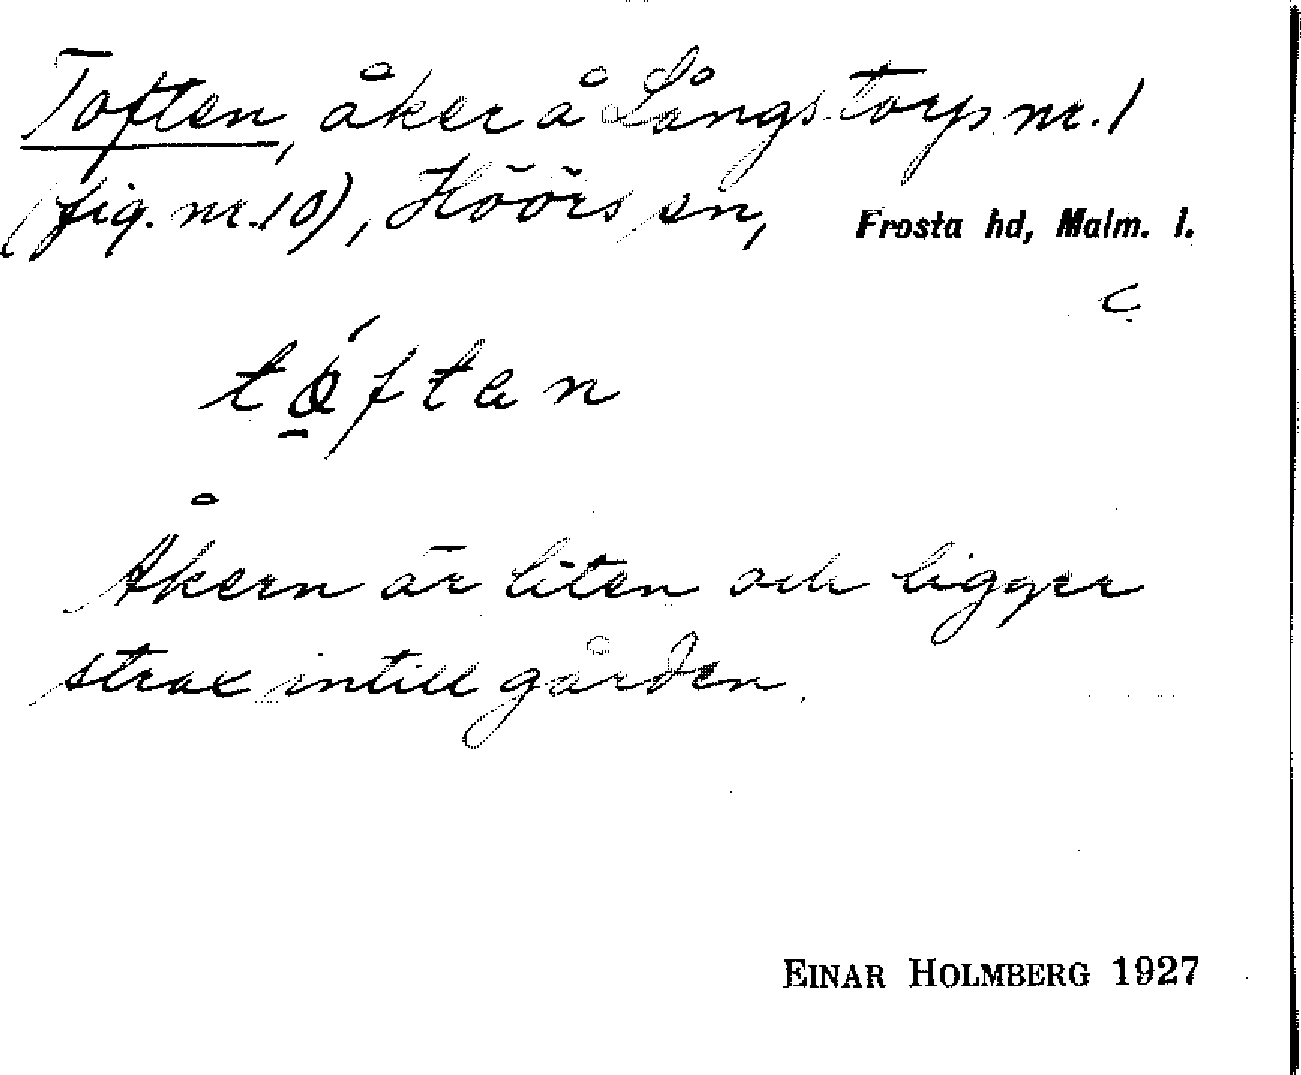 Toften, åker å Långstorp nr. 1
(fig. nr. 10), Höörs sn, Frosta hd, Malm. l.
C
Åkern är liten och ligger
strax intill gården.
EINAR HOLMBERG 1927